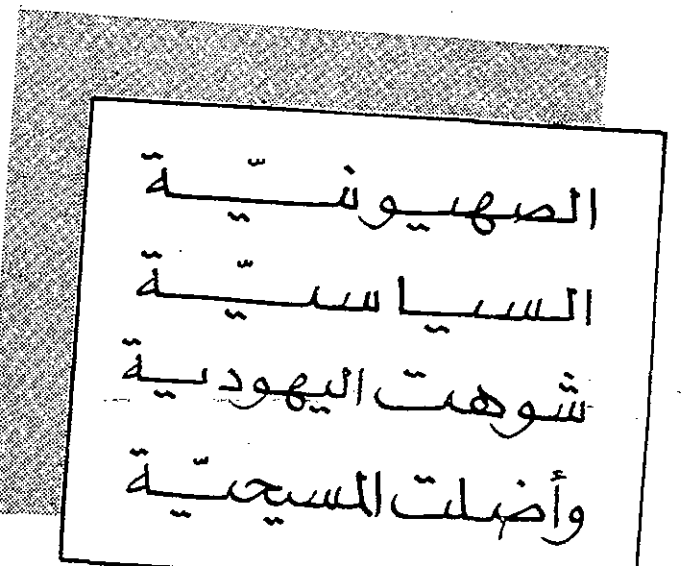 الصهيونيّة
السياسيّة
شوهت اليهودية
وأضلت المسيحيّة